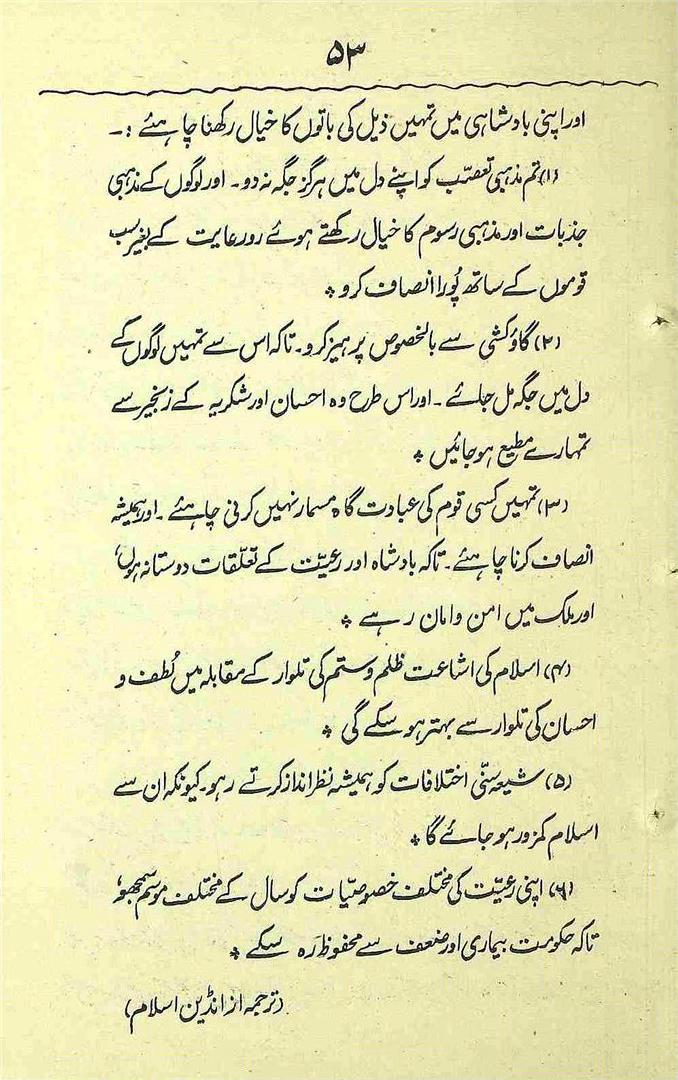 ۵۳
اور اپنی بادشاہی میں تمہیں ذیل کی باتوں کا خیال رکھنا چاہئے :۔
(۱) تم مذہبی تعصّب کو اپنے دل میں ہرگز جگہ نہ دو۔ اور لوگوں کے مذہبی
جذبات اور مذہبی رسوم کا خیال رکھتے ہوئے رورعایت کے بغیر سب
قوموں کے ساتھ پُورا انصاف کرو *
(۲) گاؤکشی سے بالخصوص پرہیز کرو۔ تاکہ اس سے تمہیں لوگوں کے
دل میں جگہ مل جائے۔ اور اس طرح وہ احسان اور شکریہ کے زنجیر سے
تمہارے مطیع ہو جائیں *
(۳) تمہیں کسی قوم کی عبادت گاہ مسمار نہیں کرنی چاہئے۔ اور ہمیشہ
انصاف کرنا چاہئے۔ تاکہ بادشاہ اور رعیّت کے تعلّقات دوستانہ ہوں،
اور ملک میں امن و امان رہے *
(۴) اسلام کی اشاعت ظلم و ستم کی تلوار کے مقابلہ میں لُطف و
احسان کی تلوار سے بہتر ہو سکے گی *
(۵) شیعہ سنّی اختلافات کو ہمیشہ نظر انداز کرتے رہو۔ کیونکہ ان سے
اسلام کمزور ہو جائے گا *
(۶) اپنی رعیّت کی مختلف خصوصیّات کو سال کے مختلف موسم سمجھو،
تاکہ حکومت بیماری اور ضعف سے محفوظ رَہ سکے *
(ترجمہ از انڈین اسلام)